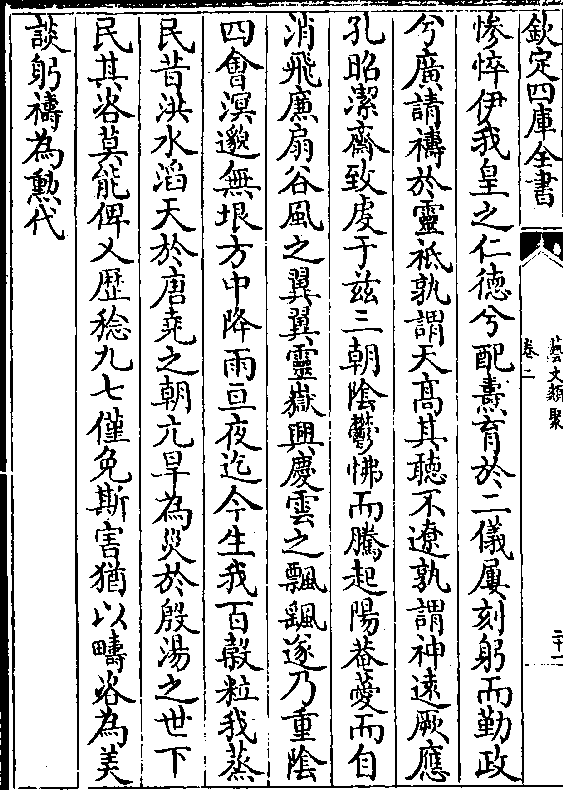 欽定四庫全書
藝文類聚
卷二
二十一
慘悴伊我皇之仁德兮配燾育於二儀屢刻躬而勤政
兮廣請禱於靈祇孰謂天高其聽不遼孰謂神遠厥應
孔昭潔齋致虔于茲三朝陰鬱怫而騰起陽菴薆而自
消飛廉扇谷風之翼翼靈嶽興慶雲之飄颻遂乃重陰
四會溟邈無垠方中降雨亘夜迄今生我百穀粒我蒸
民昔洪水滔天於唐堯之朝亢旱為災於殷湯之世下
民其咨莫能俾乂歷稔九七僅免斯害猶以疇咨為美
談躬禱為勲代